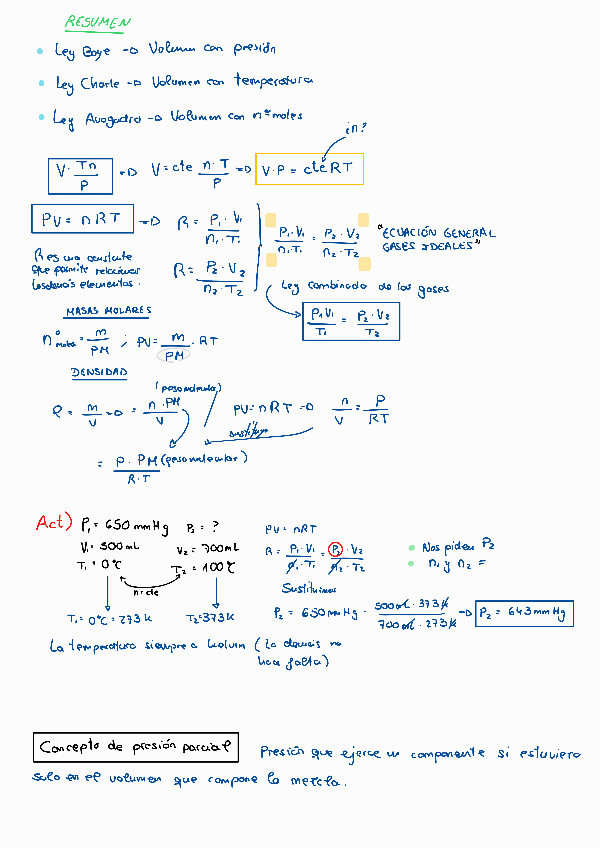 RESUMEN
• Ley Boye → Volumen con presión
• Ley Charle → Volumen con temperatura
• Ley Avogadro → Volumen con nº moles
¿n?
V · Tn / P → V = cte n · T / P → V · P = cte RT
PV = nRT → R = P₁ · V₁ / n₁ · T₁
R = P₂ · V₂ / n₂ · T₂
P₁ · V₁ / n₁ · T₁ = P₂ · V₂ / n₂ · T₂
"ECUACIÓN GENERAL
GASES IDEALES"
R es una constante
que permite relacionar
los demás elementos.
Ley combinada de los gases
P₁V₁ / T₁ = P₂ · V₂ / T₂
MASAS MOLARES
nº moles = m / PM ; PV = m / PM · RT
DENSIDAD
(peso molecular)
ρ = m / V → = n · PM / V
PV = nRT → n / V = P / RT
sustituyo
= P · PM (peso molecular) / R · T
Act) P₁ = 650 mmHg P₂ = ?
V₁ = 500 mL V₂ = 700 mL
T₁ = 0ºC T₂ = 100ºC
n = cte
T₁ = 0ºC = 273 K T₂ = 373 K
PV = nRT
R = P₁ · V₁ / n₁ · T₁ = P₂ · V₂ / n₂ · T₂
• Nos piden P₂
• n₁ y n₂ =
Sustituimos
P₂ = 650 mmHg · 500 mL · 373 K / 700 mL · 273 K → P₂ = 643 mmHg
La temperatura siempre a kelvin (lo demás no
hace falta)
Concepto de presión parcial
Presión que ejerce un componente si estuviera
solo en el volumen que compone la mezcla.